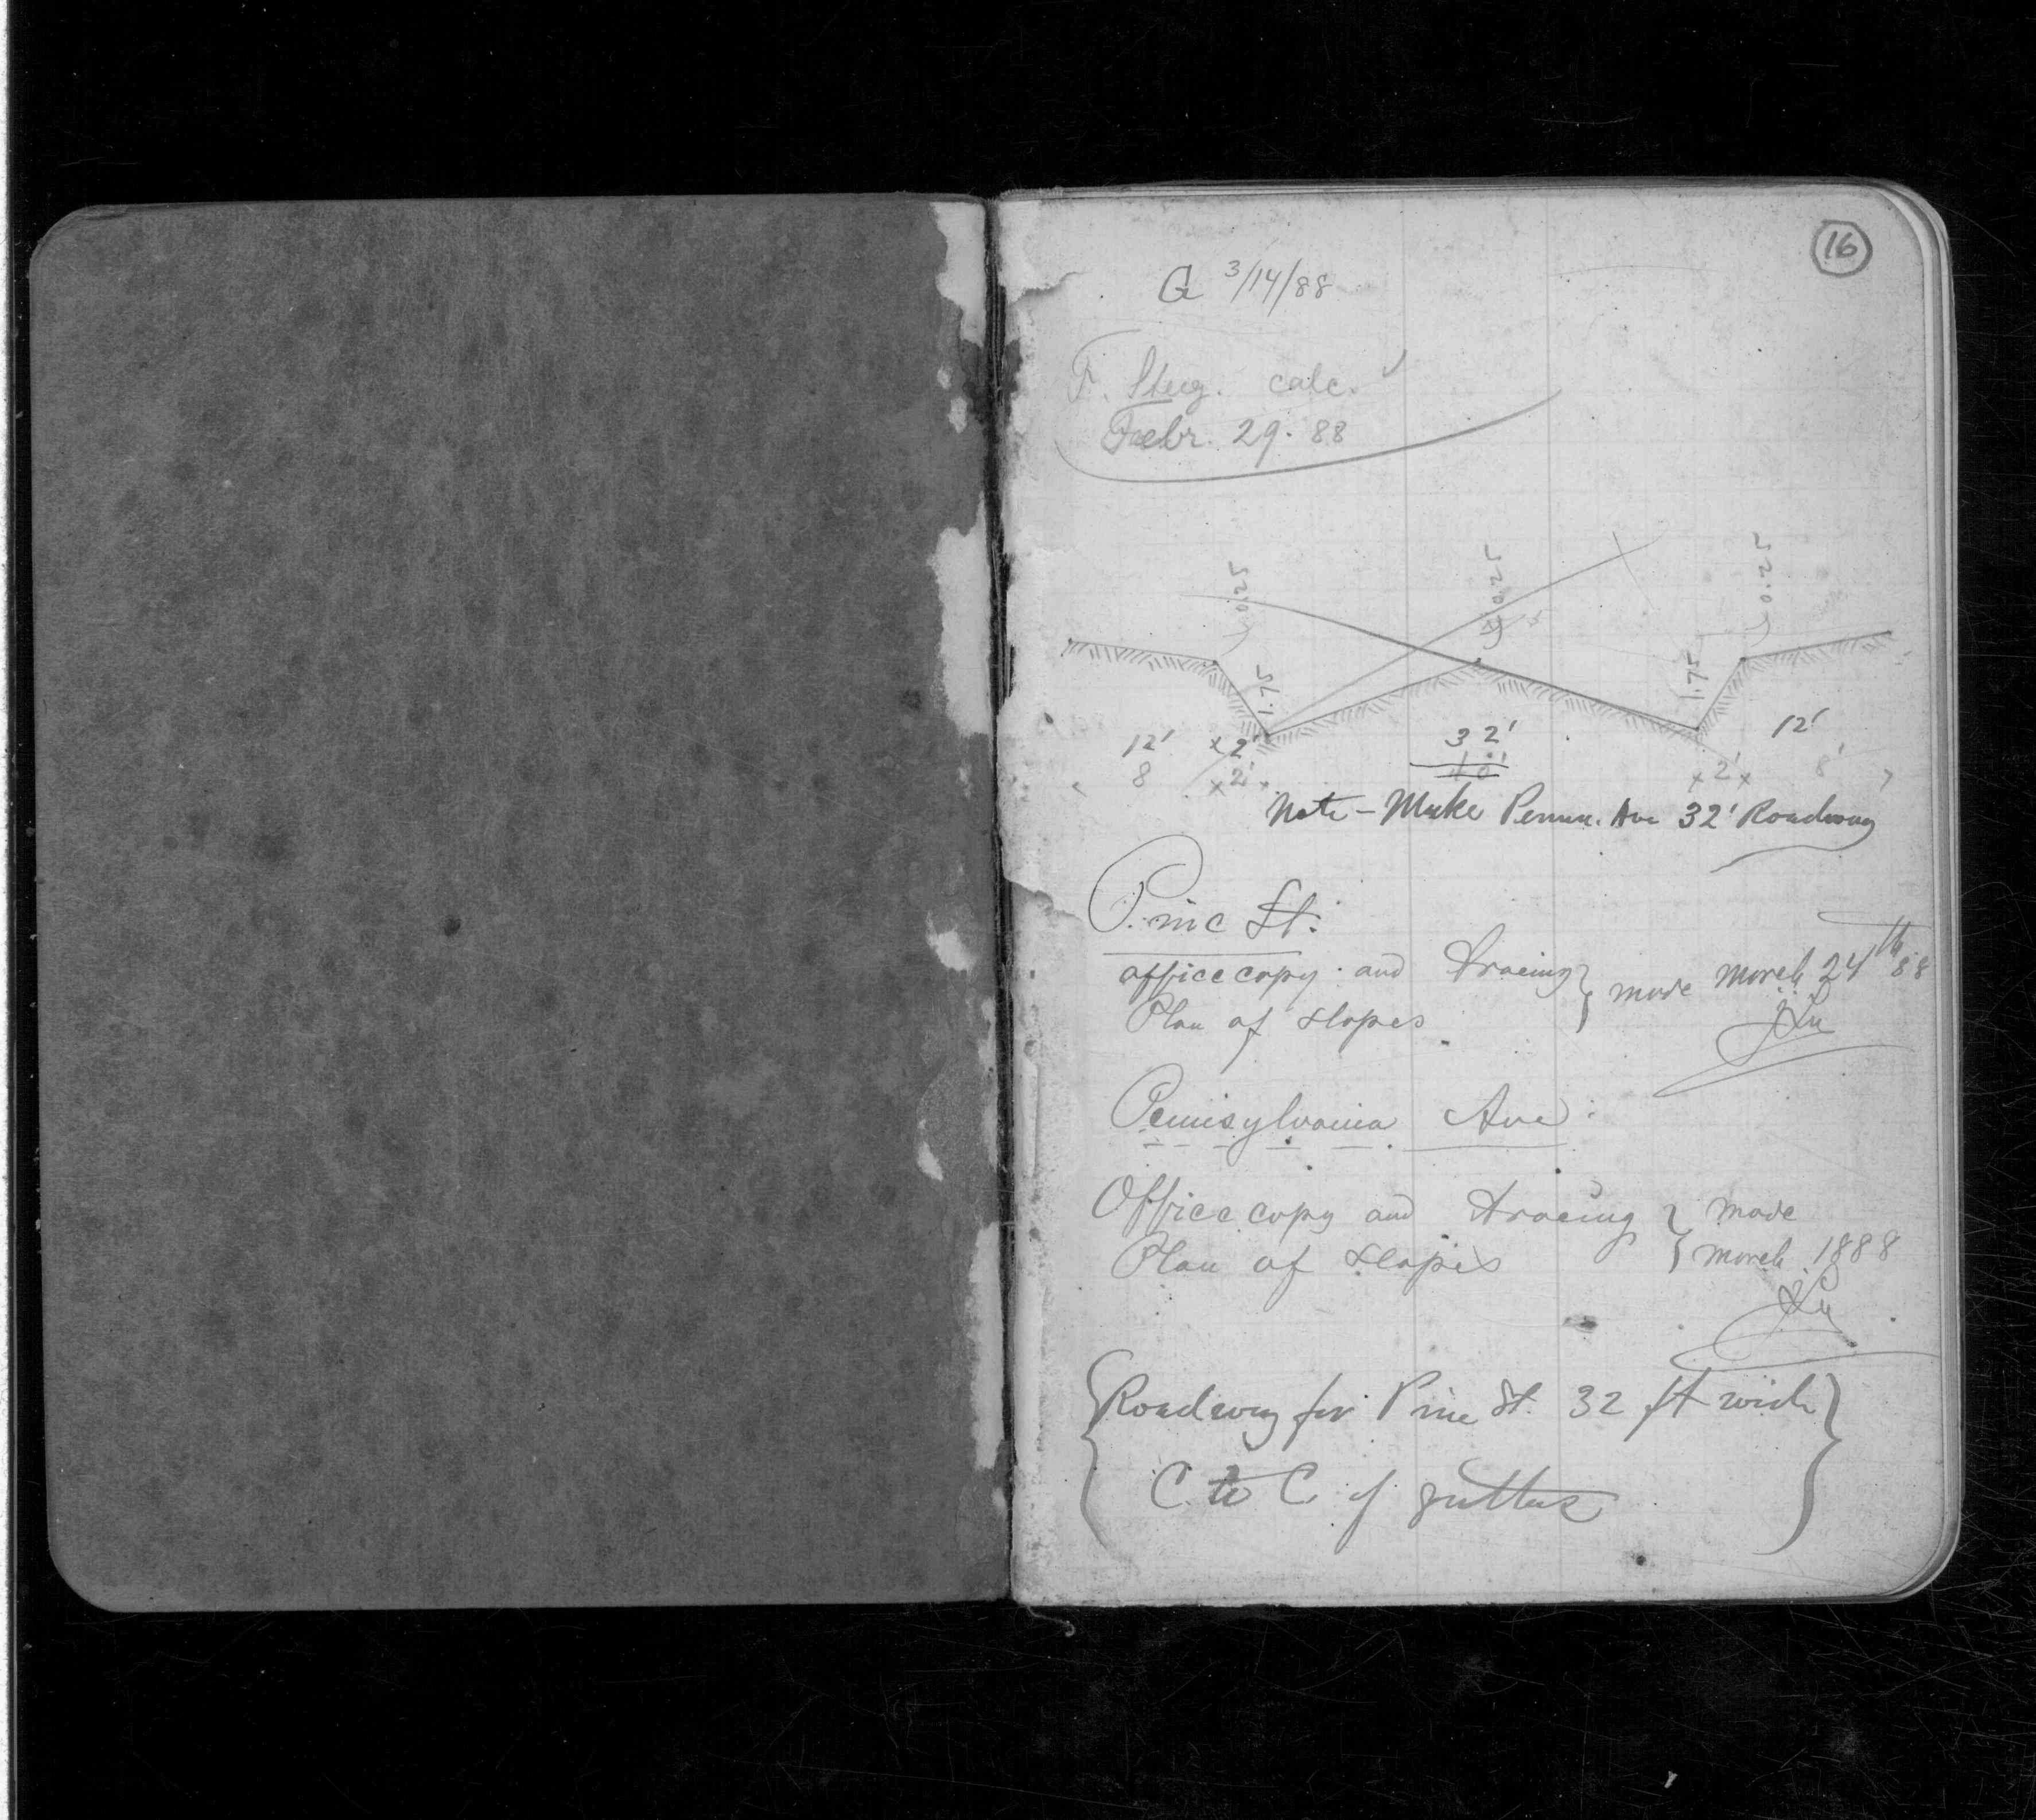 16
G 3/14/88
F. calc.
Febr. 29. 88
0.25 0.25 0.25
1.75 1.75
12' 2' 32' 12'
8 2' 40' 2' 8'
Note - Make Penna. Ave 32' Roadway
Pine St:
office copy and tracing } made March 24th 88
Plan of slopes
Pennsylvania Ave:
Office copy and tracing } made
Plan of slopes } March 1888
{Roadway for Pine St. 32 ft wide}
C to C of gutters